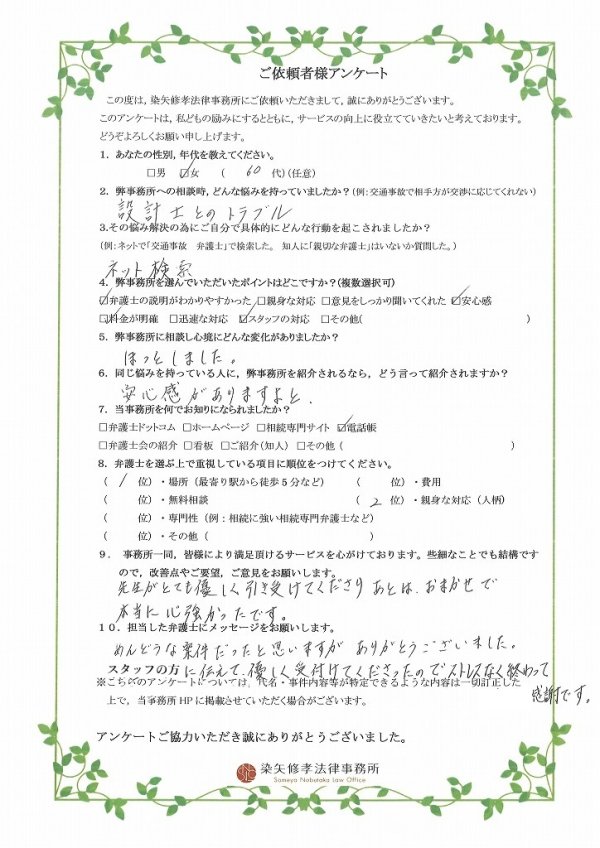 ご依頼者様アンケート
この度は,染矢修孝法律事務所にご依頼いただきまして,誠にありがとうございます。
このアンケートは,私どもの励みにするとともに,サービスの向上に役立てていきたいと考えております。
どうぞよろしくお願い申し上げます。
1.あなたの性別,年代を教えてください。
□男 ☑女 ( 60 代)(任意)
2.弊事務所への相談時,どんな悩みを持っていましたか?(例:交通事故で相手方が交渉に応じてくれない)
設計士とのトラブル
3.その悩み解決の為にご自分で具体的にどんな行動を起こされましたか?
(例:ネットで「交通事故 弁護士」で検索した。 知人に「親切な弁護士」はいないか質問した。)
ネット検索
4.弊事務所を選んでいただいたポイントはどこですか?(複数選択可)
☑弁護士の説明がわかりやすかった □親身な対応 □意見をしっかり聞いてくれた ☑安心感
☑料金が明確 □迅速な対応 ☑スタッフの対応 □その他( )
5.弊事務所に相談し心境にどんな変化がありましたか?
ほっとしました。
6.同じ悩みを持っている人に,弊事務所を紹介されるなら,どう言って紹介されますか?
安心感がありますよと.
7.当事務所を何でお知りになられましたか?
□弁護士ドットコム □ホームページ □相続専門サイト ☑電話帳
□弁護士会の紹介 □看板 □ご紹介(知人) □その他( )
8.弁護士を選ぶ上で重視している項目に順位をつけてください。
( 1 位)・場所(最寄り駅から徒歩5分など) ( 位)・費用
( 位)・無料相談 ( 2 位)・親身な対応(人柄)
( 位)・専門性(例:相続に強い相続専門弁護士など)
( 位)・その他( )
9. 事務所一同,皆様により満足頂けるサービスを心がけております。些細なことでも結構です
ので,改善点やご要望,ご意見をお願いします。
先生がとても優しく引き受けてくださりあとは、おまかせで
本当に心強かったです。
10.担当した弁護士にメッセージをお願いします。
めんどうな案件だったと思いますが ありがとうございました。
スタッフの方に伝えて、優しく受付けてくださったのでストレスなく終わって
感謝です。
※こちらのアンケートについては,氏名・事件内容等が特定できるような内容は一切訂正した
上で,当事務所HPに掲載させていただく場合がございます。
アンケートご協力いただき誠にありがとうございました。
染矢修孝法律事務所
Someya Nobutaka Law Office